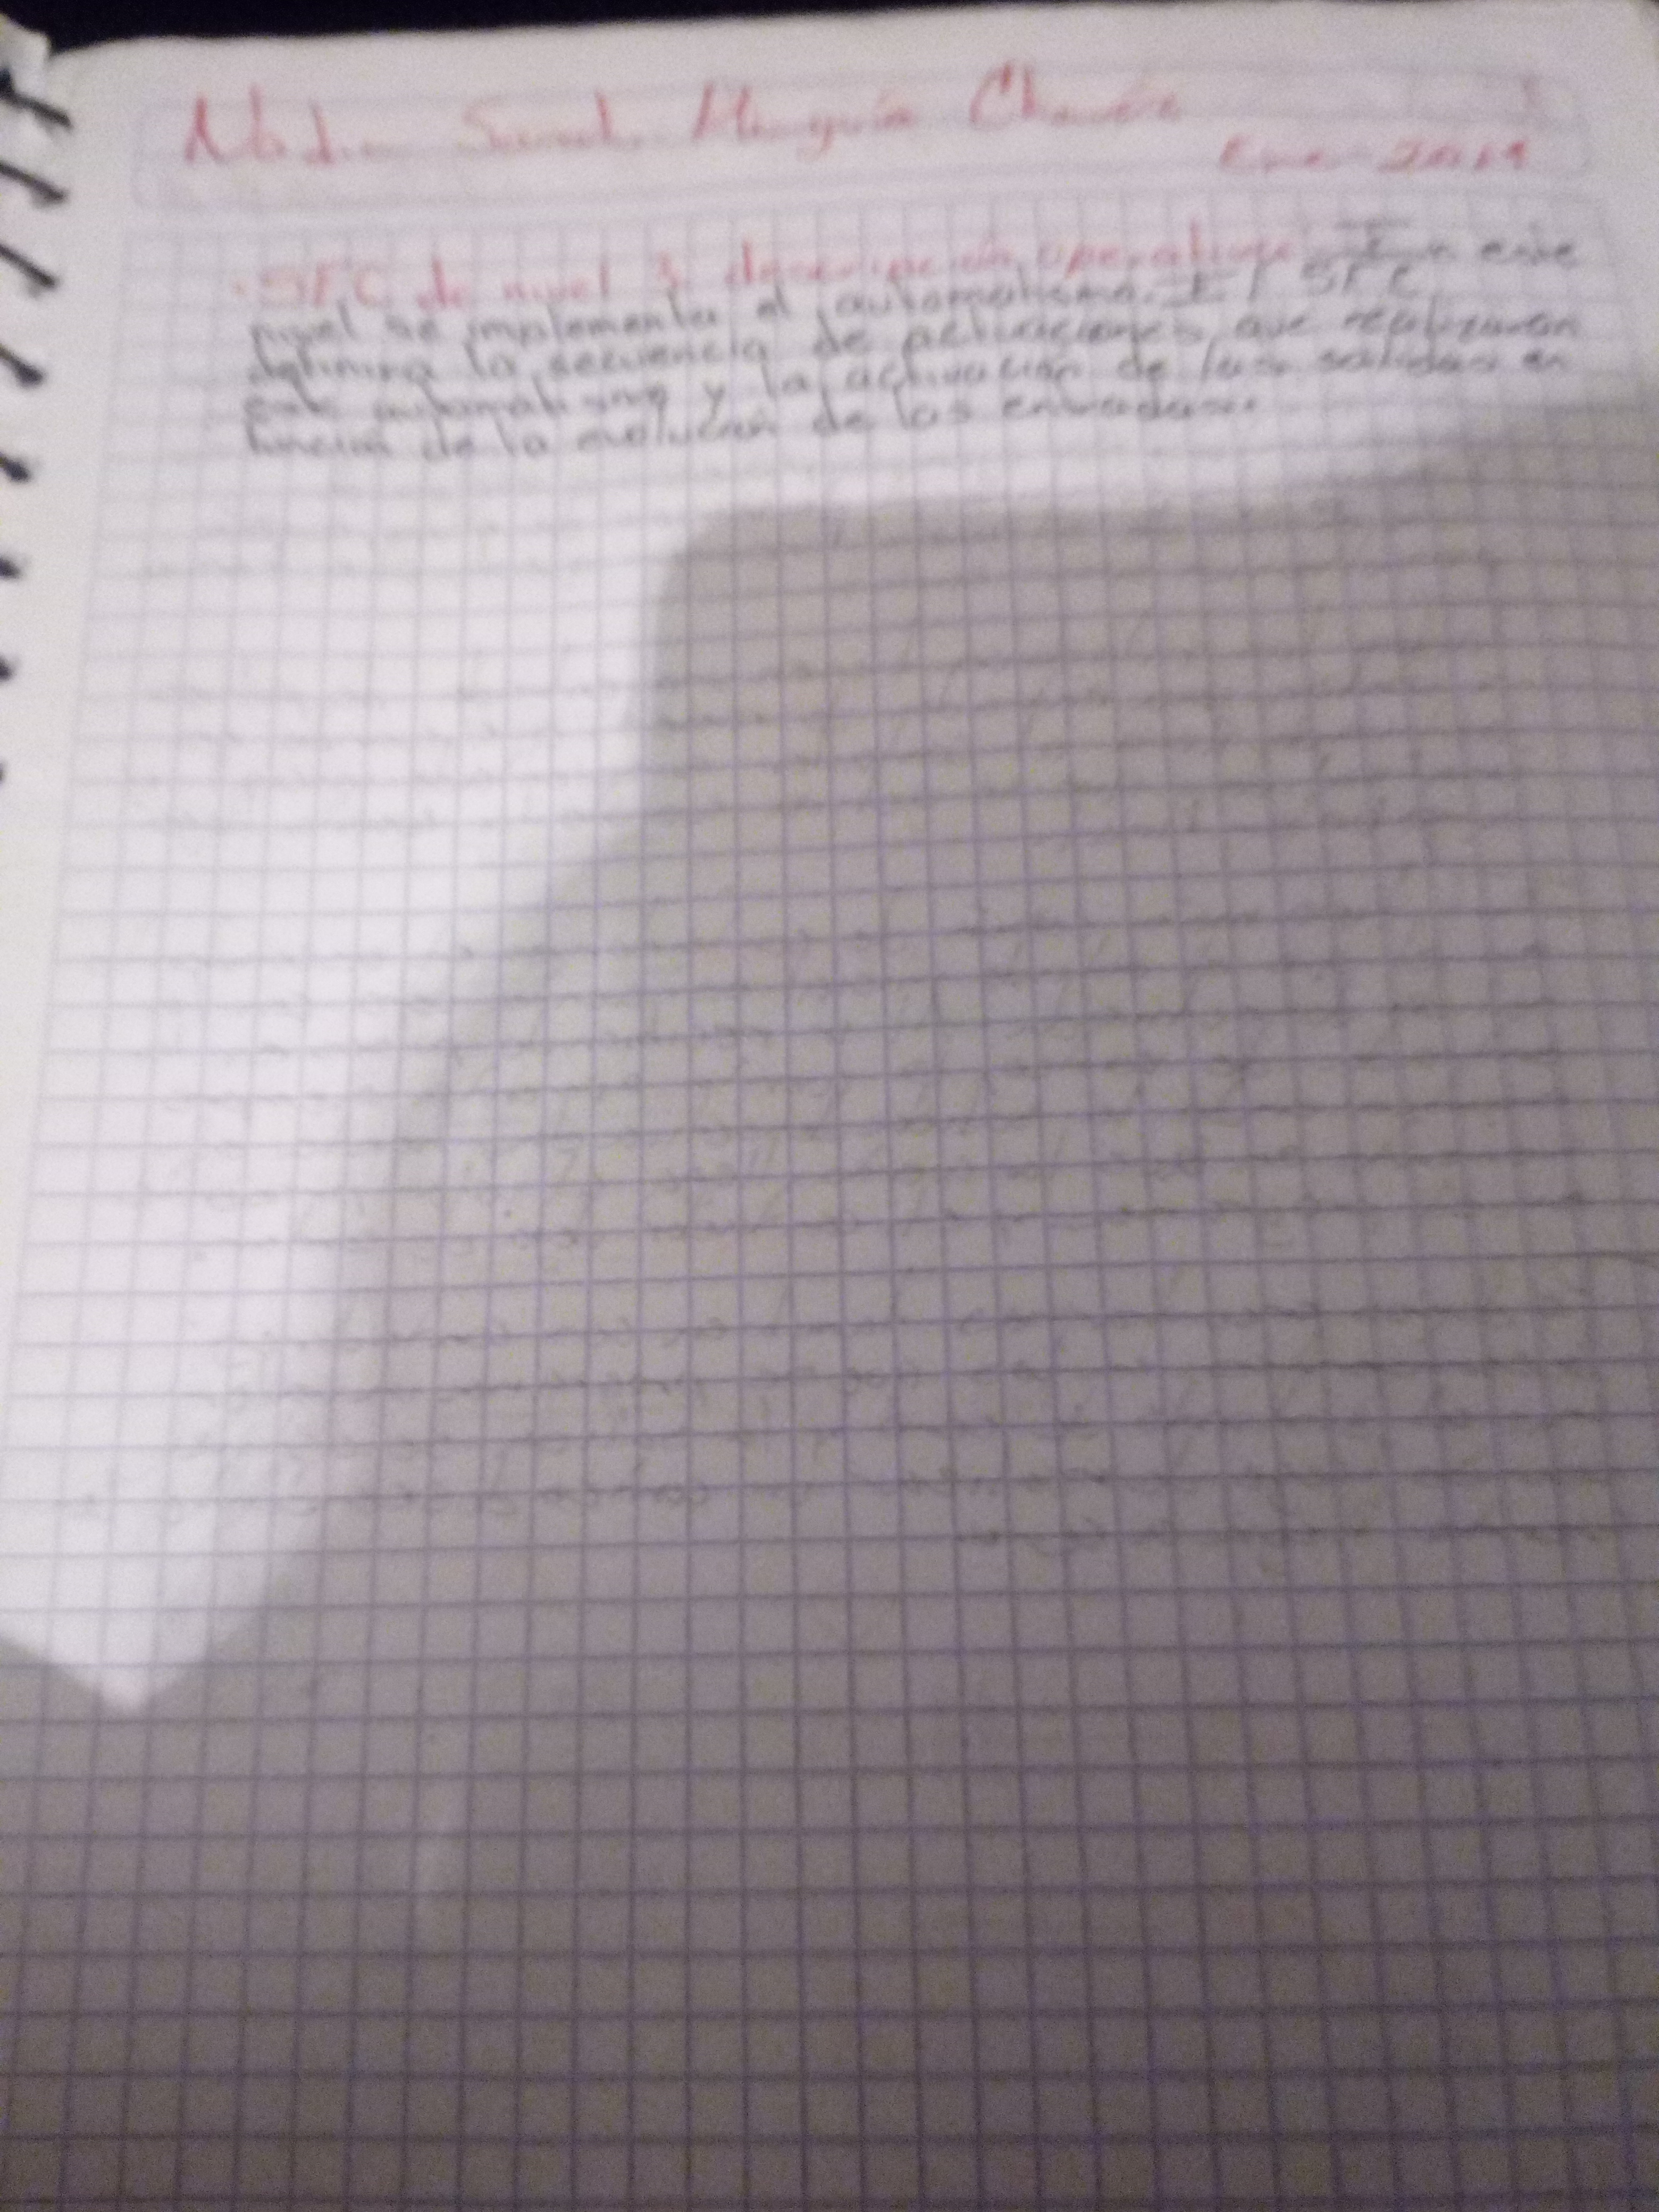 Munguía Chavéz
Ene 2019
· SFC de nivel 3, descripción operativa: En este
nivel se implementa el automatismo. El SFC
definirá la secuencia de activaciones que realizarán
este automatismo y la activación de las salidas en
función de la evolución de las entradas.